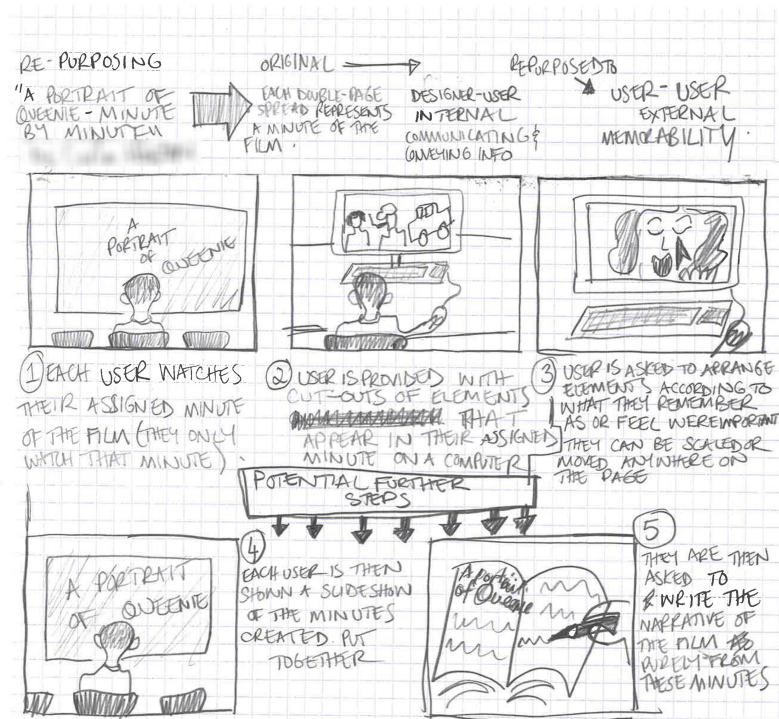 RE-PURPOSING
"A PORTRAIT OF
QUEENIE - MINUTE
BY MINUTE"
ORIGINAL
EACH DOUBLE-PAGE
SPREAD REPRESENTS
A MINUTE OF THE
FILM.
DESIGNER-USER
INTERNAL
COMMUNICATING &
CONVEYING INFO
REPURPOSED TO
USER-USER
EXTERNAL
MEMORABILITY.
A
PORTRAIT
OF QUEENIE
1 EACH USER WATCHES
THEIR ASSIGNED MINUTE
OF THE FILM (THEY ONLY
WATCH THAT MINUTE).
2 USER IS PROVIDED WITH
CUT-OUTS OF ELEMENTS
THAT
APPEAR IN THEIR ASSIGNED
MINUTE ON A COMPUTER
3 USER IS ASKED TO ARRANGE
ELEMENTS ACCORDING TO
WHAT THEY REMEMBER
AS OR FEEL WERE IMPORTANT
THEY CAN BE SCALED OR
MOVED ANYWHERE ON
THE PAGE
POTENTIAL FURTHER
STEPS
A PORTRAIT
OF QUEENIE
4
EACH USER IS THEN
SHOWN A SLIDESHOW
OF THE MINUTES
CREATED PUT
TOGETHER
A portrait
of Queenie
5
THEY ARE THEN
ASKED TO
WRITE THE
NARRATIVE OF
THE FILM
PURELY FROM
THESE MINUTES